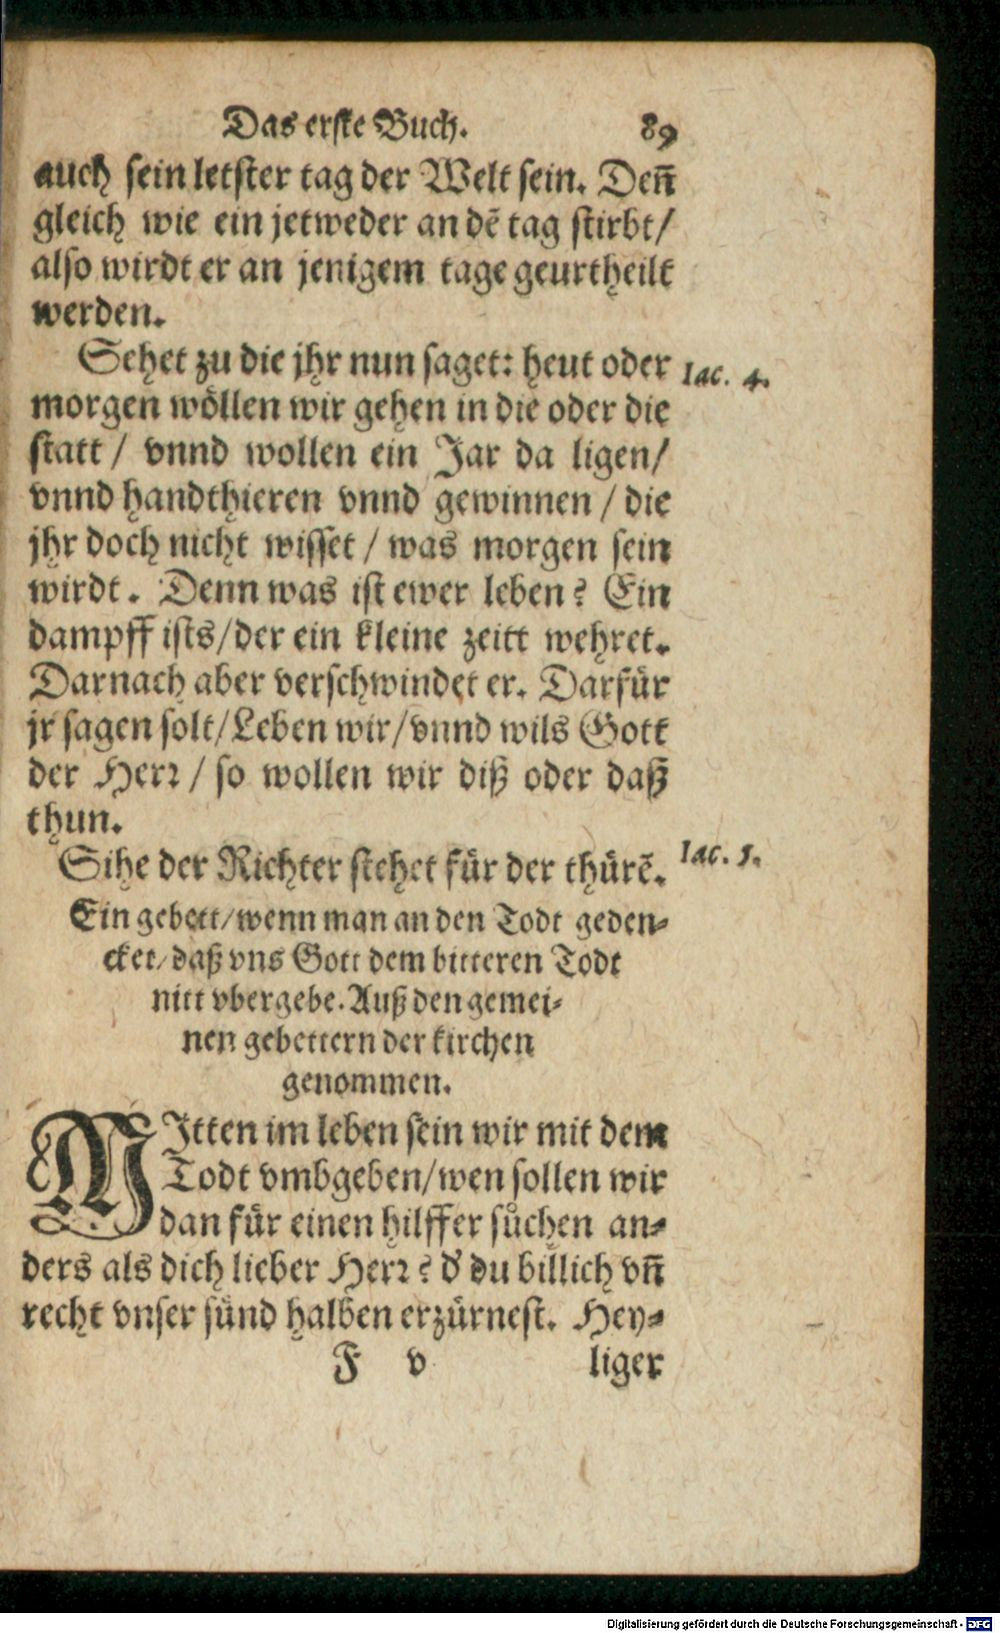 Das erste Buch. 89
auch sein letster tag der Welt sein. Deñ
gleich wie ein jetweder an dẽ tag stirbt/
also wirdt er an jenigem tage geurtheilt
werden.
Sehet zu die jhr nun saget: heut oder
Iac. 4.
morgen wöllen wir gehen in die oder die
statt / vnnd wollen ein Jar da ligen/
vnnd handthieren vnnd gewinnen / die
jhr doch nicht wisset / was morgen sein
wirdt. Denn was ist ewer leben? Ein
dampff ists/der ein kleine zeitt wehret.
Darnach aber verschwindet er. Darfür
jr sagen solt/Leben wir/vnnd wils Gott
der Herr / so wollen wir diß oder daß
thun.
Sihe der Richter stehet für der thürẽ.
Iac. 5.
Ein gebett/wenn man an den Todt geden-
cket/daß vns Gott dem bitteren Todt
nitt vbergebe. Auß den gemei-
nen gebettern der kirchen
genommen.
MItten im leben sein wir mit dem
Todt vmbgeben/wen sollen wir
dan für einen hilffer sůchen an-
ders als dich lieber Herr? d' du billich vñ
recht vnser sünd halben erzürnest. Hey-
F v liger
Digitalisierung gefördert durch die Deutsche Forschungsgemeinschaft - DFG